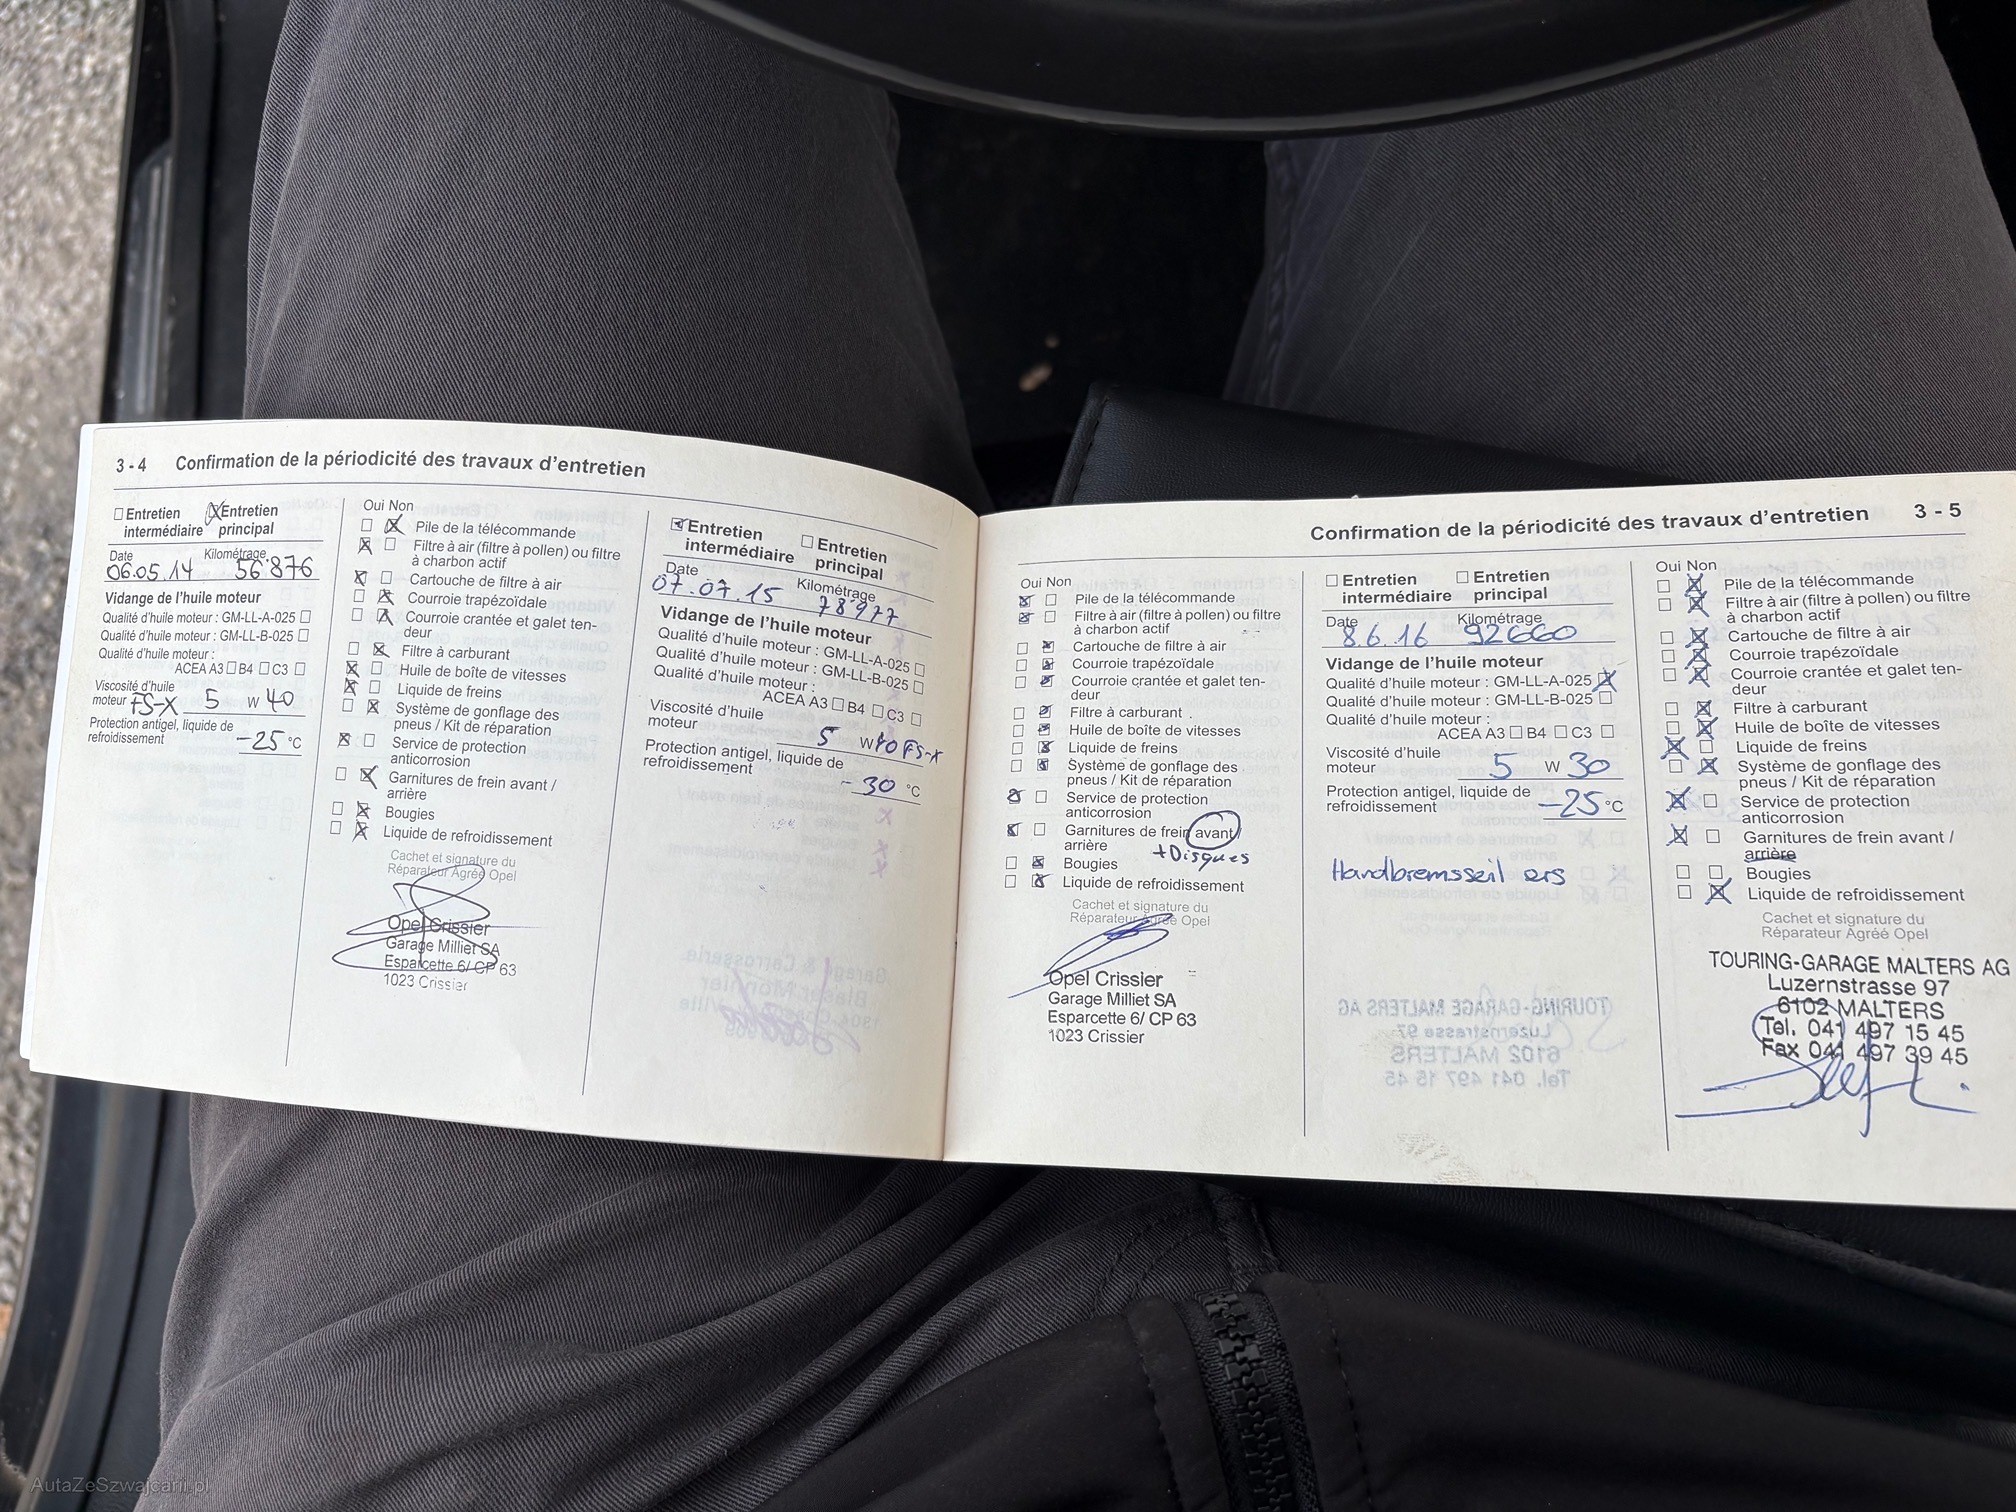 3 - 4 Confirmation de la périodicité des travaux d'entretien
Entretien intermédiaire
Entretien principal
Date Kilométrage
06.05.14 56'876
Vidange de l'huile moteur
Qualité d'huile moteur : GM-LL-A-025
Qualité d'huile moteur : GM-LL-B-025
Qualité d'huile moteur :
ACEA A3 B4 C3
Viscosité d'huile
moteur FS-X 5 W 40
Protection antigel, liquide de
refroidissement -25 °C
Oui Non
Pile de la télécommande
Filtre à air (filtre à pollen) ou filtre
à charbon actif
Cartouche de filtre à air
Courroie trapézoïdale
Courroie crantée et galet ten-
deur
Filtre à carburant
Huile de boîte de vitesses
Liquide de freins
Système de gonflage des
pneus / Kit de réparation
Service de protection
anticorrosion
Garnitures de frein avant /
arrière
Bougies
Liquide de refroidissement
Cachet et signature du
Réparateur Agréé Opel
Opel Crissier
Garage Milliet SA
Esparcette 6/ CP 63
1023 Crissier
Entretien intermédiaire
Entretien principal
Date Kilométrage
07.07.15 78'977
Vidange de l'huile moteur
Qualité d'huile moteur : GM-LL-A-025
Qualité d'huile moteur : GM-LL-B-025
Qualité d'huile moteur :
ACEA A3 B4 C3
Viscosité d'huile
moteur 5 W 40 FS-X
Protection antigel, liquide de
refroidissement -30 °C
Confirmation de la périodicité des travaux d'entretien 3 - 5
Oui Non
Pile de la télécommande
Filtre à air (filtre à pollen) ou filtre
à charbon actif
Cartouche de filtre à air
Courroie trapézoïdale
Courroie crantée et galet ten-
deur
Filtre à carburant
Huile de boîte de vitesses
Liquide de freins
Système de gonflage des
pneus / Kit de réparation
Service de protection
anticorrosion
Garnitures de frein avant /
arrière + Disques
Bougies
Liquide de refroidissement
Cachet et signature du
Réparateur Agréé Opel
Opel Crissier
Garage Milliet SA
Esparcette 6/ CP 63
1023 Crissier
Entretien intermédiaire
Entretien principal
Date Kilométrage
8.6.16 92660
Vidange de l'huile moteur
Qualité d'huile moteur : GM-LL-A-025
Qualité d'huile moteur : GM-LL-B-025
Qualité d'huile moteur :
ACEA A3 B4 C3
Viscosité d'huile
moteur 5 W 30
Protection antigel, liquide de
refroidissement -25 °C
Handbremsseil ers
Oui Non
Pile de la télécommande
Filtre à air (filtre à pollen) ou filtre
à charbon actif
Cartouche de filtre à air
Courroie trapézoïdale
Courroie crantée et galet ten-
deur
Filtre à carburant
Huile de boîte de vitesses
Liquide de freins
Système de gonflage des
pneus / Kit de réparation
Service de protection
anticorrosion
Garnitures de frein avant /
arrière
Bougies
Liquide de refroidissement
Cachet et signature du
Réparateur Agréé Opel
TOURING-GARAGE MALTERS AG
Luzernstrasse 97
6102 MALTERS
Tel. 041 497 15 45
Fax 041 497 39 45
AutaZeSzwajcarii.pl